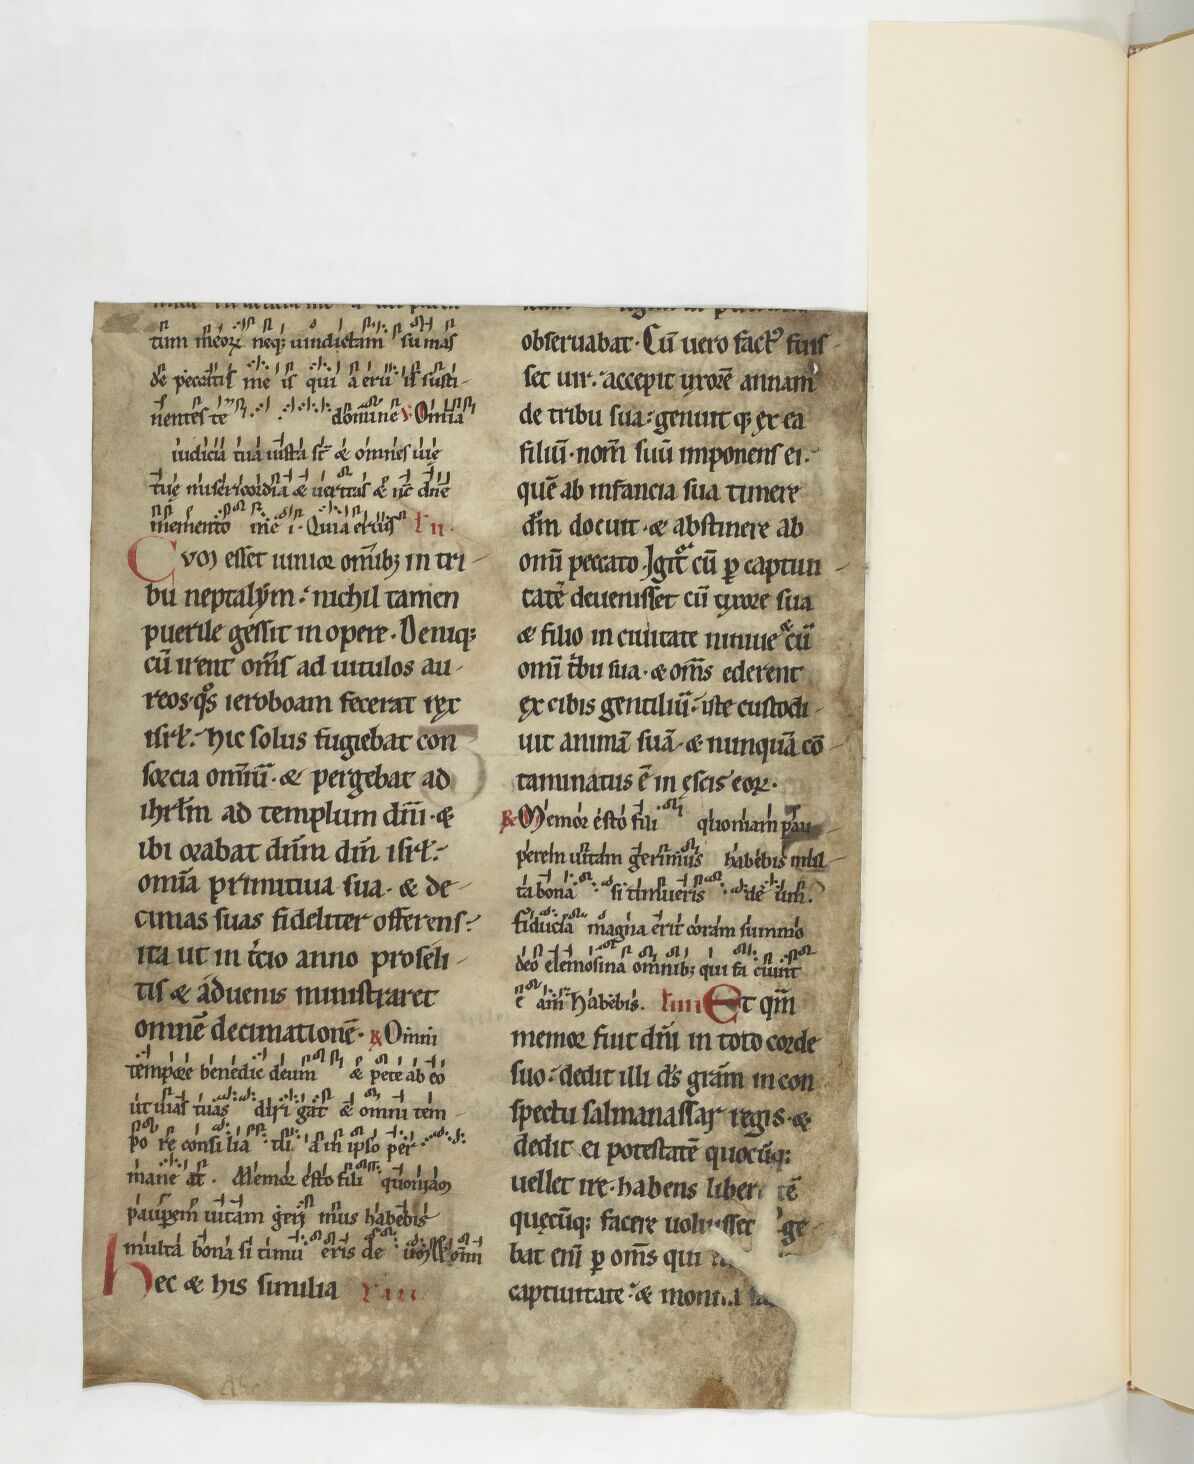 tum meoꝝ neqꝫ uindictam sumas
de peccatis me is qui a eru is susti-
nentes te domine V Omnia
iudicia tua iusta st̄ & omnes uie
tuę misericordia & ueritas & nc̄ dn̄e
memento me i. Quia eruis L̄ II.
Cvm esset iunior om̄ibꝫ in tri-
bu neptalym. nichil tamen
puerile gessit in opere. Deniqꝫ
cū irent om̄s ad uitulos au-
reos. qºs ieroboam fecerat rex
isrl̄. hic solus fugiebat con-
sorcia omīū. & pergebat ad
ihrl̄m ad templum dn̄i. &
ibi orabat dn̄m dm̄ isrl̄.
omīa primitiua sua. & de-
cimas suas fideliter offerens.
ita ut in t̄cio anno proseli-
tis & aduenis ministraret
omnē decimationē. R Omni
tempore benedic deum & pete ab eo
ut uias tuas diri gat & omni tem-
po re consi lia tu a in ipso per
mane at. Memor esto fili quoniam
pauperem uitam geri mus habebis
multa bona si timu eris de
hec & his similia L̄ III.
obseruabat. Cū uero fact' fuis-
set uir. accepit uxorē annam
de tribu sua. genuit qꝫ ex ea
filiū. nom̄ suū imponens ei.
quē ab infancia sua timere
dm̄ docuit. & abstinere ab
omī peccato. Igit̄ cū ꝑ captiui-
tatē deuenisset cū uxore sua
& filio in ciuitate niniue & cū
omī t̄bu sua. & om̄s ederent
ex cibis gentiliū. iste custodi-
uit animā suā. & nunquā cō-
taminatus ē in ęscis eoꝝ.
R Memor esto fili quoniam pau-
perem uitam gerimus habebis mul-
ta bona si timueris de um.
V Fiducia magna erit coram summo
deo elemosina omnibꝫ qui fa ciunt
e am habebis. L̄ IIII Et qm̄
memor fuit dn̄i in toto corde
suo. dedit illi ds̄ gram̄ in con
spectu salmanassar regis. &
dedit ei potestatē quocūqꝫ
uellet ire. habens liber tē
quęcūqꝫ facere uoluisset ge-
bat eni ꝑ om̄s qui
captiuitate. &